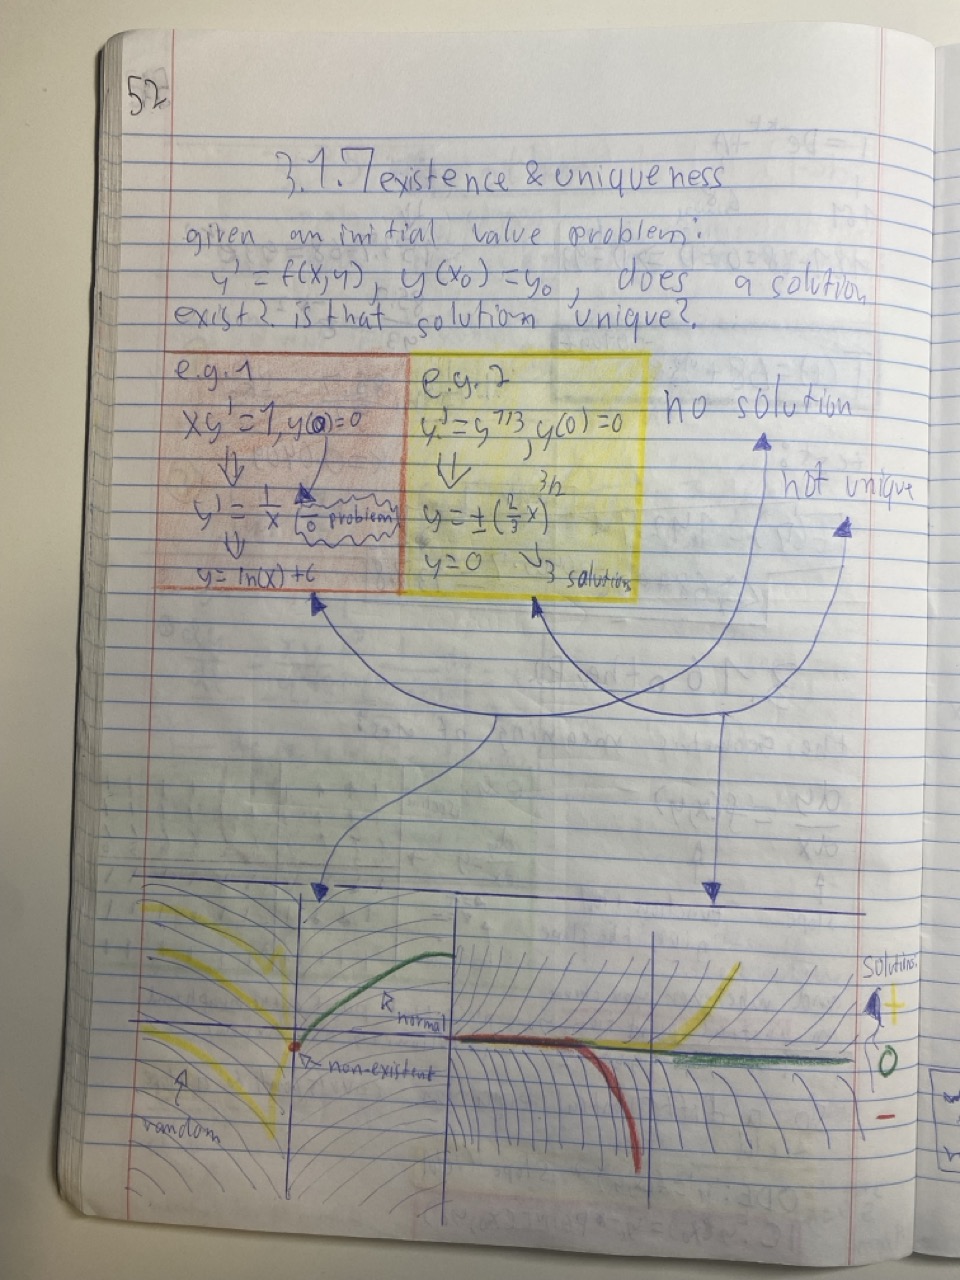 52
3.1.7 existence & uniqueness
given an initial value problem:
y' = f(x,y), y(x₀) = y₀, does a solution
exist? is that solution unique?
e.g. 1
xy' = 1, y(0) = 0
⇓
y' = 1/x 1/0 problem
⇓
y = ln(x) + C
e.g. 2
y' = y^1/3, y(0) = 0
⇓
y = ± (2/3 x)^3/2
y = 0 ↳ 3 solutions
no solution
not unique
normal
non-existent
random
solutions:
+
0
-